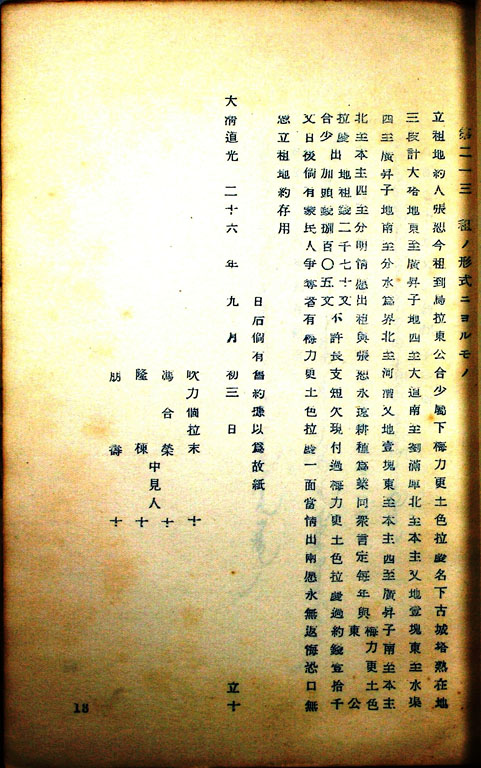 第二ー三 租ノ形式ニヨルモノ
立租地約人張恕今租到烏拉東公合少屬下梅力更土色拉處名下古城塔熟在地
三段計大哈地東至廣昇子地西至大道南至劉滿庫北至本主又地壹塊東至水渠
西至廣昇子地南至分水爲界北至河渭又地壹塊東至本主西至廣昇子南至本主
北至本主四至分明情愿出租與張恕永遠耕種爲業同衆言定每年與梅力更土色
東公
拉處出地租錢二千七十文不許長支短欠現付過梅力更土色拉處過約錢壹拾千
合少加頭錢捌百〇五文
又日後倘有蒙民人爭奪者有梅力更土色拉處一面當情出兩愿永無返悔恐口無
憑立租地約存用
日后倘有舊約據以爲故紙
大淸道光二十六年九月初三日 立十
吹力個拉末 十
海合榮 十
中見人
隆棟 十
朋壽 十
18